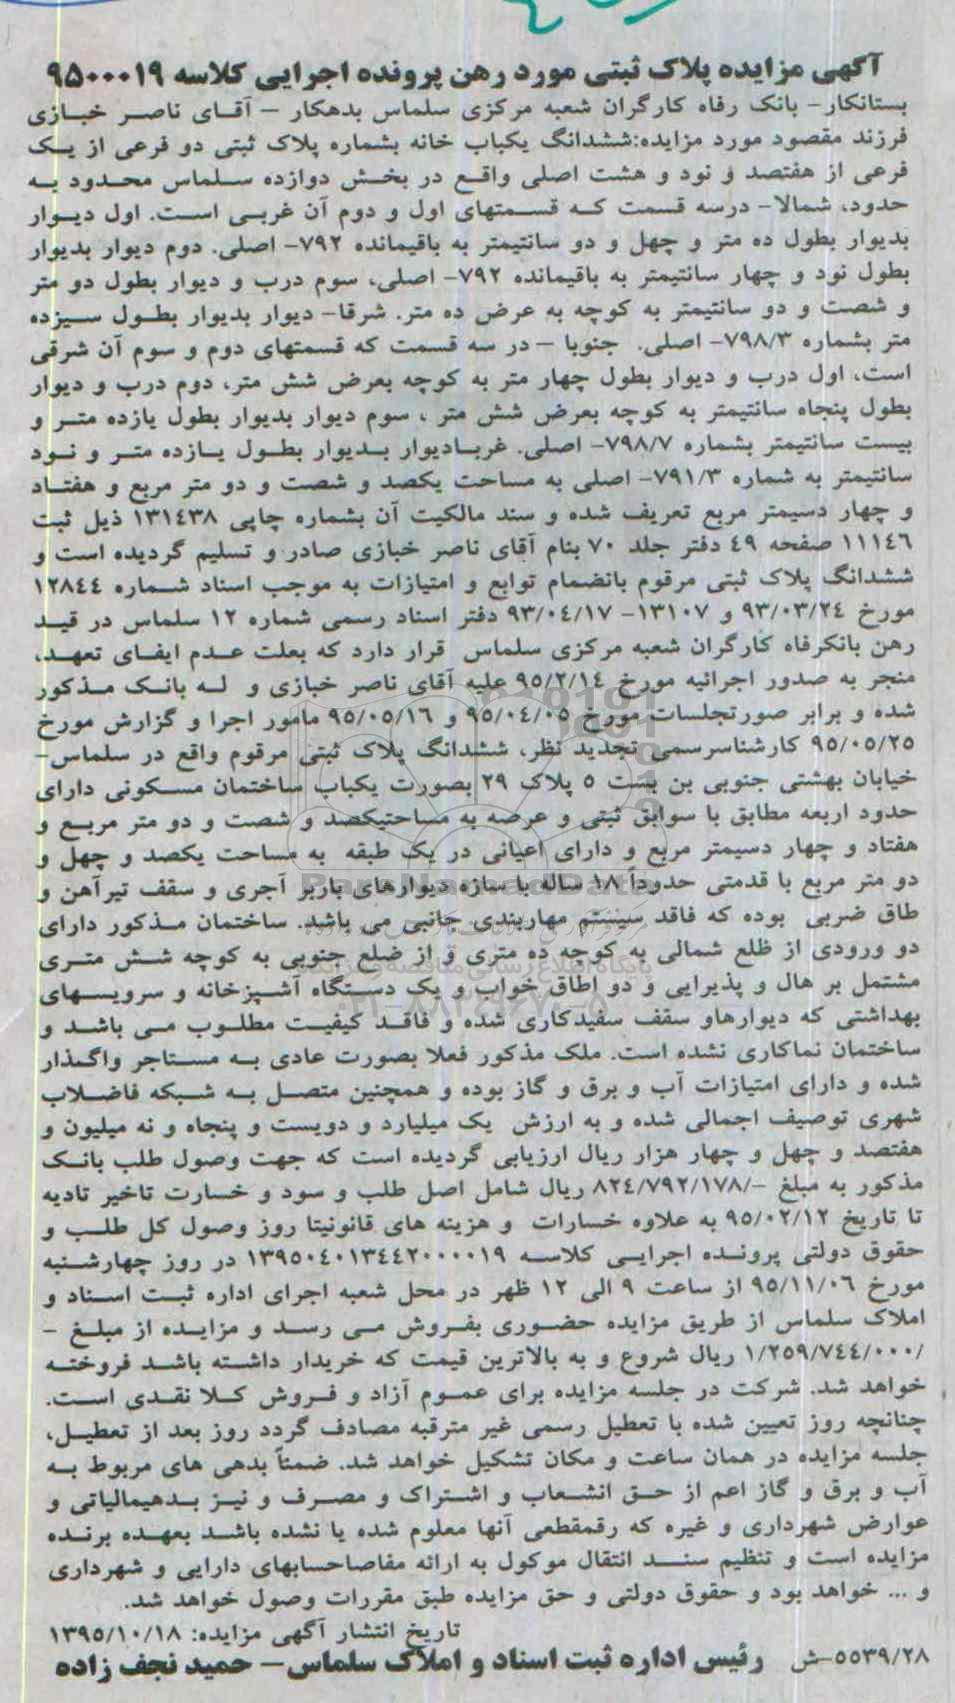 آگهی مزایده پلاک ثبتی مورد رهن پرونده اجرایی کلاسه ۹۵۰۰۰۱۹
بستانکار- بانک رفاه کارگران شعبه مرکزی سلماس بدهکار – آقای ناصر خبازی
فرزند مقصود مورد مزایده:ششدانگ یکباب خانه بشماره پلاک ثبتی دو فرعی از یک
فرعی از هفتصد و نود و هشت اصلی واقع در بخش دوازده سلماس محدود به
حدود، شمالا- درسه قسمت که قسمتهای اول و دوم آن غربی است. اول دیوار
بدیوار بطول ده متر و چهل و دو سانتیمتر به باقیمانده ۷۹۲- اصلی. دوم دیوار بدیوار
بطول نود و چهار سانتیمتر به باقیمانده ۷۹۲- اصلی، سوم درب و دیوار بطول دو متر
و شصت و دو سانتیمتر به کوچه به عرض ده متر. شرقا- دیوار بدیوار بطول سیزده
متر بشماره ۷۹۸/۳- اصلی. جنوبا – در سه قسمت که قسمتهای دوم و سوم آن شرقی
است، اول درب و دیوار بطول چهار متر به کوچه بعرض شش متر، دوم درب و دیوار
بطول پنجاه سانتیمتر به کوچه بعرض شش متر ، سوم دیوار بدیوار بطول یازده متر و
بیست سانتیمتر بشماره ۷۹۸/۷- اصلی. غربادیوار بدیوار بطول یازده متر و نود
سانتیمتر به شماره ۷۹۱/۳- اصلی به مساحت یکصد و شصت و دو متر مربع و هفتاد
و چهار دسیمتر مربع تعریف شده و سند مالکیت آن بشماره چاپی ۱۳۱٤۳۸ ذیل ثبت
۱۱۱٤٦ صفحه ٤۹ دفتر جلد ۷۰ بنام آقای ناصر خبازی صادر و تسلیم گردیده است و
ششدانگ پلاک ثبتی مرقوم بانضمام توابع و امتیازات به موجب اسناد شماره ۱۲۸٤٤
مورخ ۹۳/۰۳/۲٤ و ۱۳۱۰۷- ۹۳/۰٤/۱۷ دفتر اسناد رسمی شماره ۱۲ سلماس در قید
رهن بانکرفاه کارگران شعبه مرکزی سلماس قرار دارد که بعلت عدم ایفای تعهد،
منجر به صدور اجرائیه مورخ ۹۵/۲/۱٤ علیه آقای ناصر خبازی و له بانک مذکور
شده و برابر صورتجلسات مورخ ۹۵/۰٤/۰۵ و ۹۵/۰۵/۱٦ مامور اجرا و گزارش مورخ
۹۵/۰۵/۲۵ کارشناسرسمی تجدید نظر، ششدانگ پلاک ثبتی مرقوم واقع در سلماس-
خیابان بهشتی جنوبی بن بست ۵ پلاک ۲۹ بصورت یکباب ساختمان مسکونی دارای
حدود اربعه مطابق با سوابق ثبتی و عرصه به مساحتیکصد و شصت و دو متر مربع و
هفتاد و چهار دسیمتر مربع و دارای اعیانی در یک طبقه به مساحت یکصد و چهل و
دو متر مربع با قدمتی حدوداً ۱۸ ساله با سازه دیوارهای باربر آجری و سقف تیرآهن و
طاق ضربی بوده که فاقد سیستم مهاربندی جانبی می باشد. ساختمان مذکور دارای
دو ورودی از ظلع شمالی به کوچه ده متری و از ضلع جنوبی به کوچه شش متری
مشتمل بر هال و پذیرایی و دو اطاق خواب و یک دستگاه آشپزخانه و سرویسهای
بهداشتی که دیوارهاو سقف سفیدکاری شده و فاقد کیفیت مطلوب می باشد و
ساختمان نماکاری نشده است. ملک مذکور فعلا بصورت عادی به مستاجر واگذار
شده و دارای امتیازات آب و برق و گاز بوده و همچنین متصل به شبکه فاضلاب
شهری توصیف اجمالی شده و به ارزش یک میلیارد و دویست و پنجاه و نه میلیون و
هفتصد و چهل و چهار هزار ریال ارزیابی گردیده است که جهت وصول طلب بانک
مذکور به مبلغ -/۸۲٤/۷۹۲/۱۷۸ ریال شامل اصل طلب و سود و خسارت تاخیر تادیه
تا تاریخ ۹۵/۰۲/۱۲ به علاوه خسارات و هزینه های قانونیتا روز وصول کل طلب و
حقوق دولتی پرونده اجرایی کلاسه ۱۳۹۵۰٤۰۱۳٤٤۲۰۰۰۰۱۹ در روز چهارشنبه
مورخ ۹۵/۱۱/۰٦ از ساعت ۹ الی ۱۲ ظهر در محل شعبه اجرای اداره ثبت اسناد و
املاک سلماس از طریق مزایده حضوری بفروش می رسد و مزایده از مبلغ -
/۱/۲۵۹/۷٤٤/۰۰۰ ریال شروع و به بالاترین قیمت که خریدار داشته باشد فروخته
خواهد شد. شرکت در جلسه مزایده برای عموم آزاد و فروش کلا نقدی است.
چنانچه روز تعیین شده با تعطیل رسمی غیر مترقبه مصادف گردد روز بعد از تعطیل،
جلسه مزایده در همان ساعت و مکان تشکیل خواهد شد. ضمناً بدهی های مربوط به
آب و برق و گاز اعم از حق انشعاب و اشتراک و مصرف و نیز بدهیمالیاتی و
عوارض شهرداری و غیره که رقمقطعی آنها معلوم شده یا نشده باشد بعهده برنده
مزایده است و تنظیم سند انتقال موکول به ارائه مفاصاحسابهای دارایی و شهرداری
و ... خواهد بود و حقوق دولتی و حق مزایده طبق مقررات وصول خواهد شد.
تاریخ انتشار آگهی مزایده: ۱۳۹۵/۱۰/۱۸
۵۵۳۹/۲۸-ش رئیس اداره ثبت اسناد و املاک سلماس- حمید نجف زاده